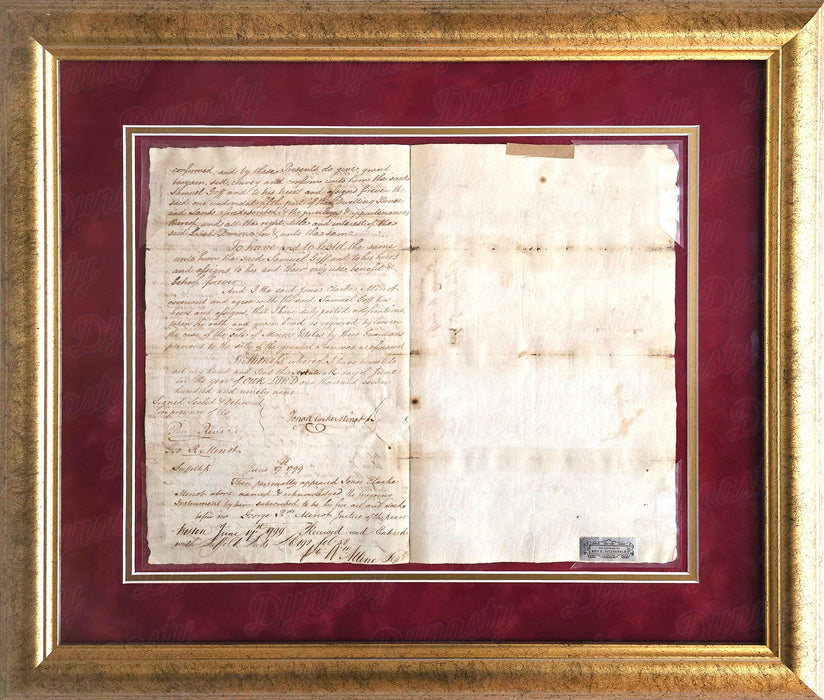 confirmed and by these Presents do give grant
bargain, sell, convey and confirm unto him the said
Samuel Goff and to his heirs and assigns forever the
said one undivided part of the Dwelling House
and Lands aforedescribed & the privileges & appurtenances
thereof and all the right, title and interest of the
said in & unto the same
To have and to hold the same
unto him the said Samuel Goff and to his heirs
and assigns to his and their only use, benefit &
behoof forever
And I the said Jonas Clarke Minot
covenant and agree with the said Samuel Goff his
heirs and assigns, that I have duly posted notifications
taken the oath and given bond as required by law in
the case of the sales of Minors Estates by their Guardians
previous to the sale of the granted Premises as aforesaid
In Witness whereof I have hereunto
set my hand and Seal this seventeenth day of June
in the year of OUR LORD one thousand seven
hundred and ninety nine
Signed Sealed & Delivered
in presence of Us
Jonas Clarke Minot
Paul Revere
Geo R Minot
Suffolk ss June 17th 1799
Then personally appeared Jonas Clarke
Minot above named & acknowledged the foregoing
Instrument by him subscribed to be his free act and deed
before me George Rds Minot Justice of the peace
Boston June 17th 1799 Received and Entered
with Suffolk Deeds Lib 192 fol 58
Wm Alline Regr
ROY G. FITZGERALD
Dynasty